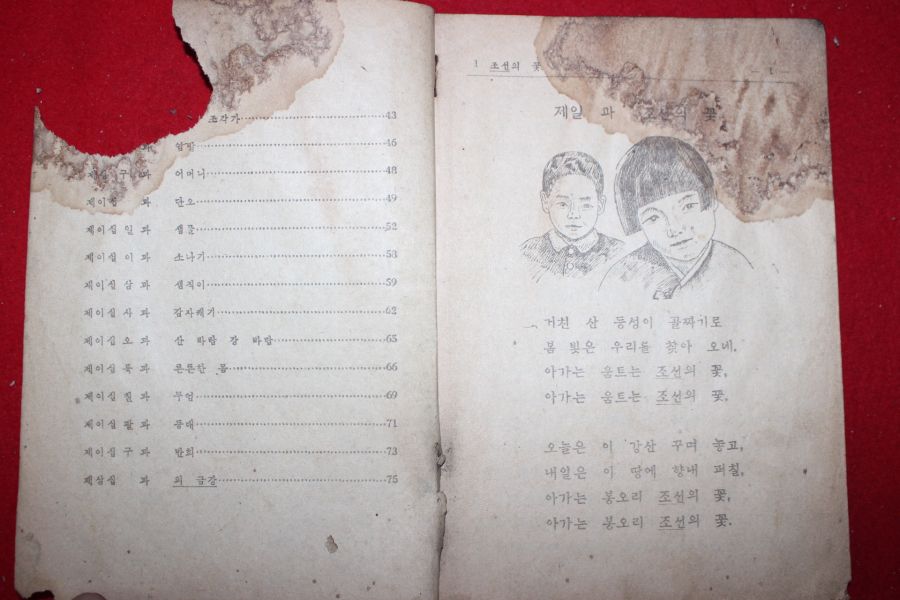 조각가 43
과 45
제십 구 과 어머니 48
제이십 과 단오 49
제이십 일 과 샘물 52
제이십 이 과 소나기 53
제이십 삼 과 59
제이십 사 과 감자캐기 62
제이십 오 과 산 바람 강 바람 65
제이십 륙 과 튼튼한 몸 66
제이십 칠 과 무엇 69
제이십 팔 과 등대 71
제이십 구 과 반희 73
제삼십 과 의 금강 75
1 조선의 꽃 1
제일 과 조선의 꽃
거친 산 등성이 골짜기로
봄 빛은 우리를 찾아 오네.
아가는 움트는 조선의 꽃,
아가는 움트는 조선의 꽃.
오늘은 이 강산 꾸며 놓고,
내일은 이 땅에 향내 퍼칠,
아가는 봉오리 조선의 꽃,
아가는 봉오리 조선의 꽃.